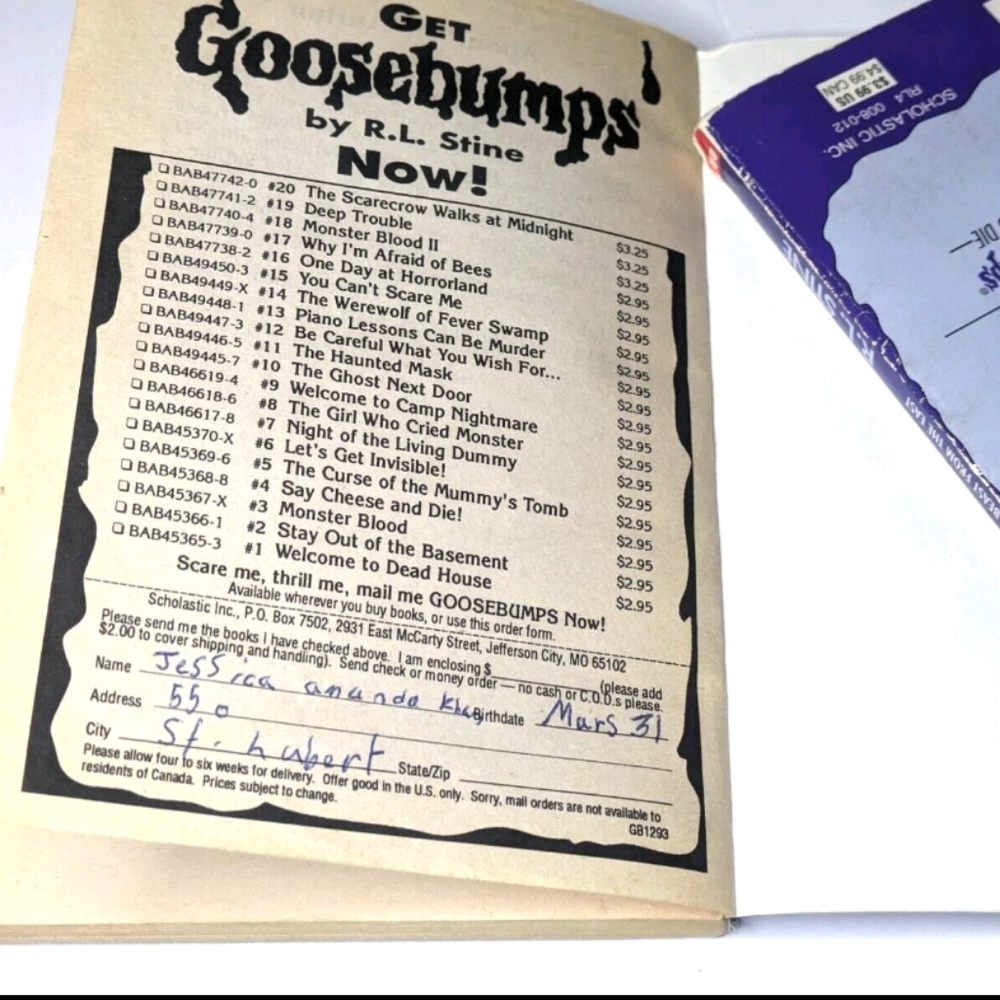 GET
Goosebumps®
by R.L. Stine
Now!
BAB47742-0 #20 The Scarecrow Walks at Midnight $3.25
BAB47741-2 #19 Deep Trouble $3.25
BAB47740-4 #18 Monster Blood II $3.25
BAB47739-0 #17 Why I'm Afraid of Bees $2.95
BAB47738-2 #16 One Day at Horrorland $2.95
BAB49450-3 #15 You Can't Scare Me $2.95
BAB49449-X #14 The Werewolf of Fever Swamp $2.95
BAB49448-1 #13 Piano Lessons Can Be Murder $2.95
BAB49447-3 #12 Be Careful What You Wish For... $2.95
BAB49446-5 #11 The Haunted Mask $2.95
BAB49445-7 #10 The Ghost Next Door $2.95
BAB46619-4 #9 Welcome to Camp Nightmare $2.95
BAB46618-6 #8 The Girl Who Cried Monster $2.95
BAB46617-8 #7 Night of the Living Dummy $2.95
BAB45370-X #6 Let's Get Invisible! $2.95
BAB45369-6 #5 The Curse of the Mummy's Tomb $2.95
BAB45368-8 #4 Say Cheese and Die! $2.95
BAB45367-X #3 Monster Blood $2.95
BAB45366-1 #2 Stay Out of the Basement $2.95
BAB45365-3 #1 Welcome to Dead House $2.95
Scare me, thrill me, mail me GOOSEBUMPS Now!
Available wherever you buy books, or use this order form.
Scholastic Inc., P.O. Box 7502, 2931 East McCarty Street, Jefferson City, MO 65102
Please send me the books I have checked above. I am enclosing $ (please add
$2.00 to cover shipping and handling). Send check or money order — no cash or C.O.D.s please.
Name Jessica ananda Birthdate Mars 31
Address 550
City St. hubert State/Zip
Please allow four to six weeks for delivery. Offer good in the U.S. only. Sorry, mail orders are not available to
residents of Canada. Prices subject to change.
GB1293
$3.99 US
$4.99 CAN
RL4 008-012
SCHOLASTIC INC.
DIE
R.L. STINE
BEAST FROM THE EAST